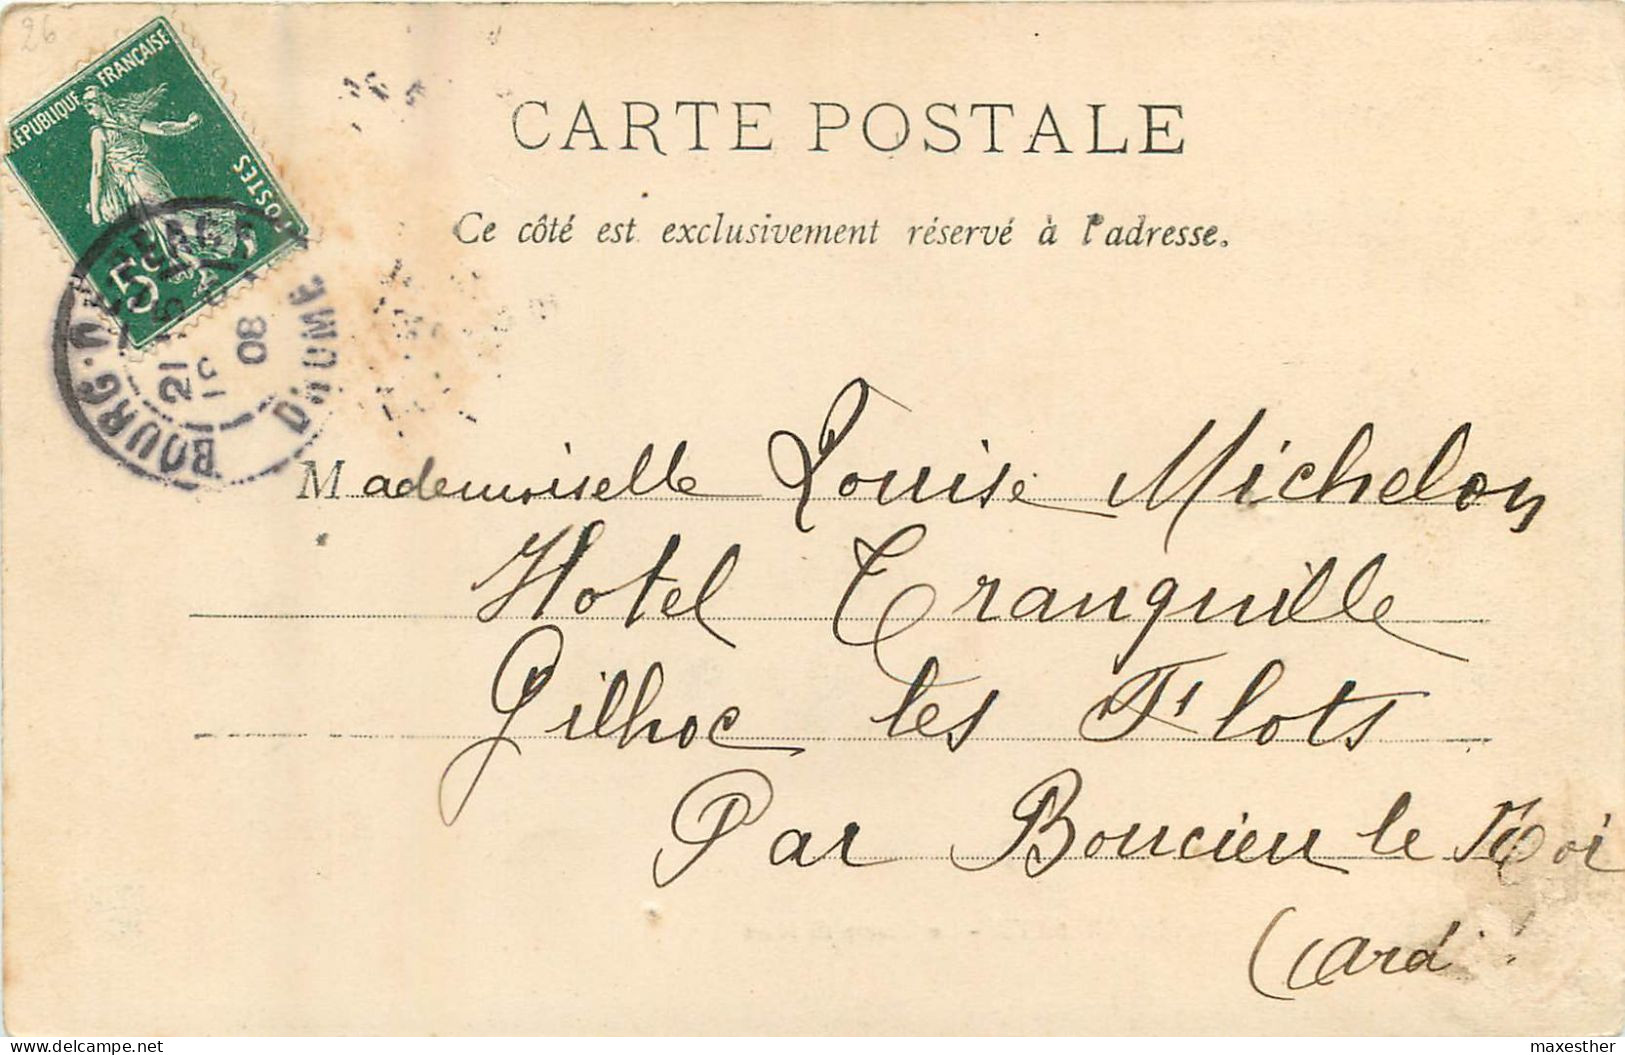 26
RÉPUBLIQUE FRANÇAISE
POSTES
5c
BOURG-DE-PEAGE
21
08
DROME
CARTE POSTALE
Ce côté est exclusivement réservé à l'adresse.
Mademoiselle Louise Michelon
Hotel Tranquille
Gilhoc les Flots
Par Boucieu le Roi
(Ard
maxesther